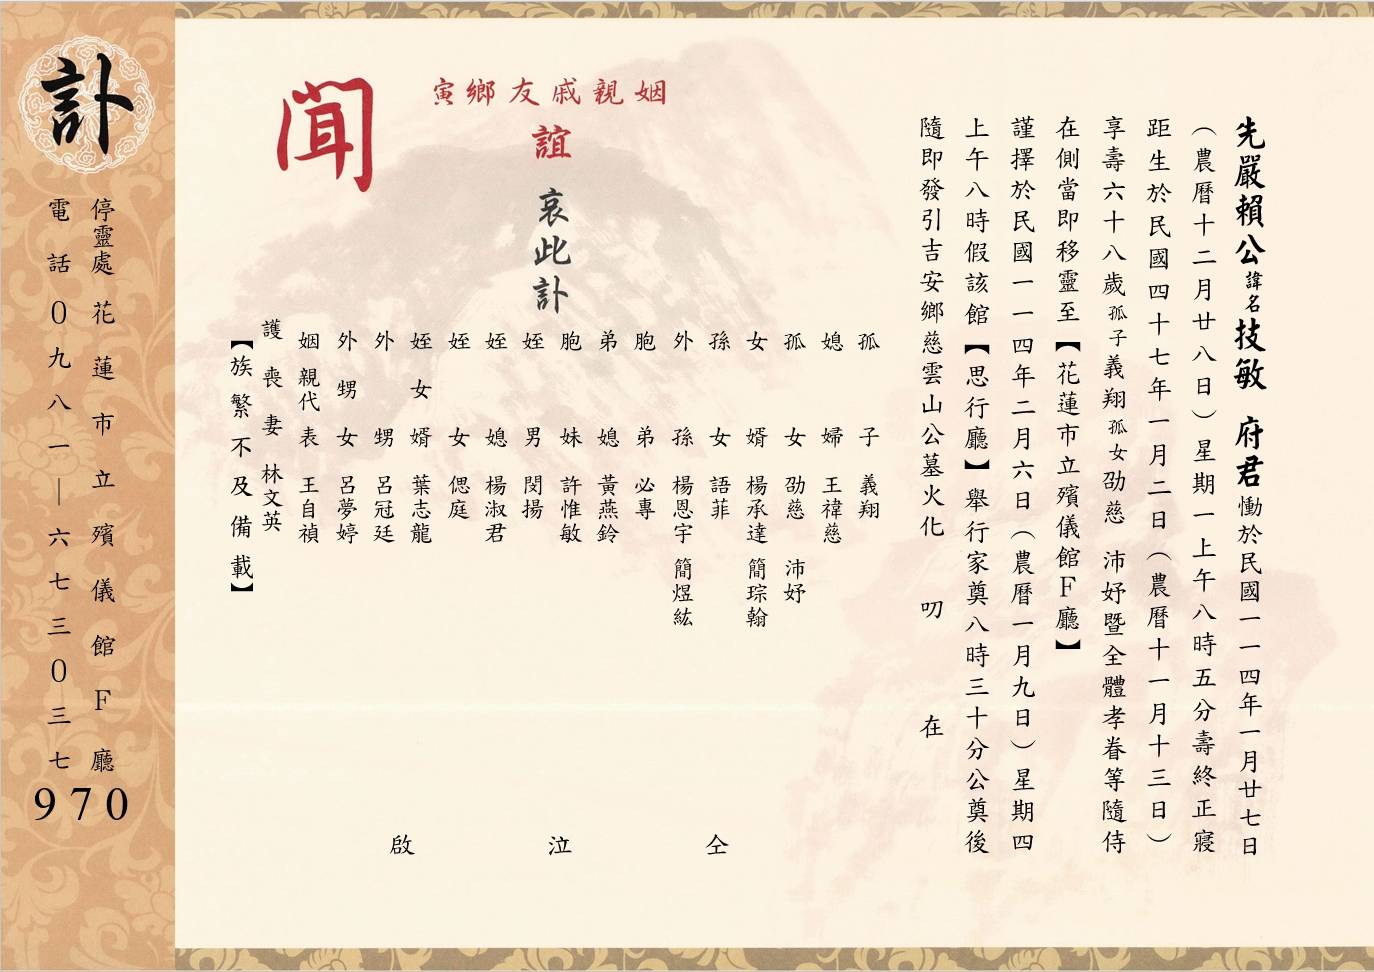 先嚴賴公諱名技敏 府君慟於民國一一四年一月廿七日
（農曆十二月廿八日）星期一上午八時五分壽終正寢
距生於民國四十七年一月二日（農曆十一月十三日）
享壽六十八歲孤子義翔孤女劭慈 沛妤暨全體孝眷等隨侍
在側當即移靈至【花蓮市立殯儀館F廳】
謹擇於民國一一四年二月六日（農曆一月九日）星期四
上午八時假該館【思行廳】舉行家奠八時三十分公奠後
隨即發引吉安鄉慈雲山公墓火化 叨 在
姻親戚友鄉寅
誼
哀此訃
聞
孤子 義翔
媳婦 王禕慈
孤女 劭慈 沛妤
女婿 楊承達 簡琮翰
孫女 語菲
外孫 楊恩宇 簡煜紘
胞弟 必專
弟媳 黃燕鈴
胞妹 許惟敏
姪男 閔揚
姪媳 楊淑君
姪女 偲庭
姪女婿 葉志龍
外甥 呂冠廷
外甥女 呂夢婷
姻親代表 王自禎
護喪妻 林文英
【族繁不及備載】
仝 泣 啟
訃
停靈處 花蓮市立殯儀館F廳
電話 0九八一—六七三0三七
970